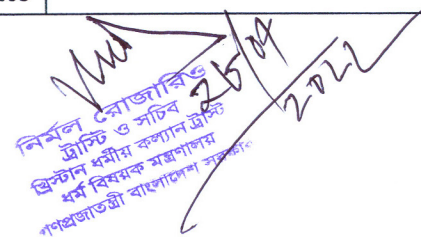 25/04
2022
নির্মল রোজারিও
ট্রাস্টি ও সচিব
খ্রিস্টান ধর্মীয় কল্যান ট্রাস্ট
ধর্ম বিষয়ক মন্ত্রণালয়
গণপ্রজাতন্ত্রী বাংলাদেশ সরকার